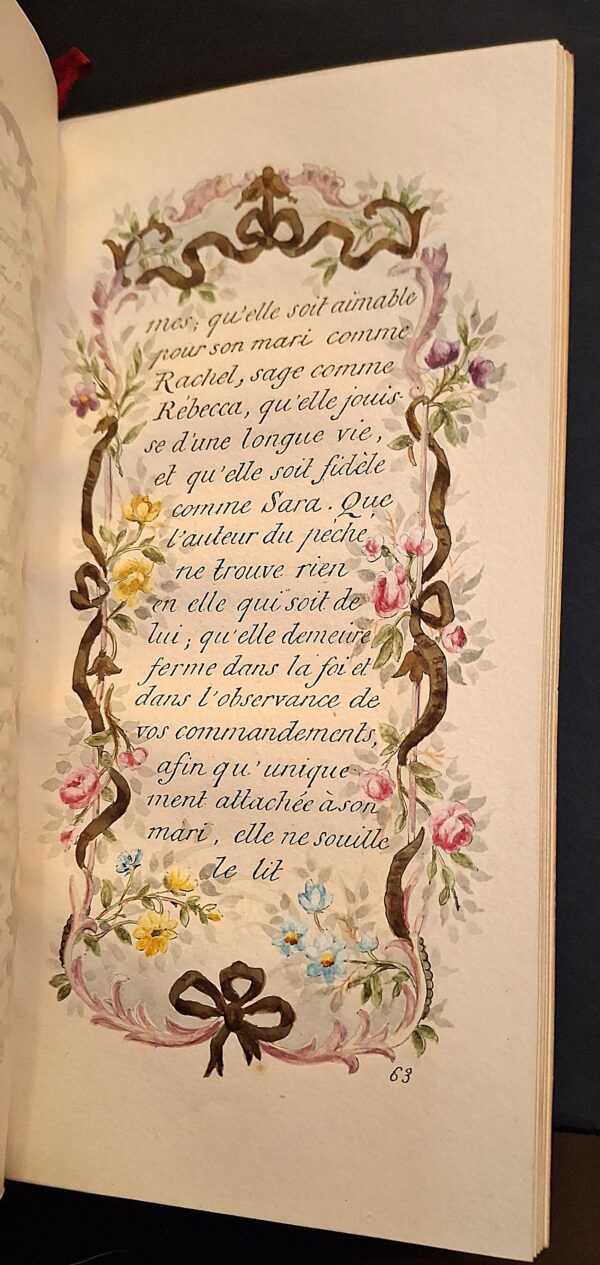 mes; qu'elle soit aimable
pour son mari comme
Rachel, sage comme
Rébecca, qu'elle jouis-
se d'une longue vie,
et qu'elle soit fidèle
comme Sara. Que
l'auteur du péché
ne trouve rien
en elle qui soit de
lui; qu'elle demeure
ferme dans la foi et
dans l'observance de
vos commandements,
afin qu'unique-
ment attachée à son
mari, elle ne souille
le lit
63